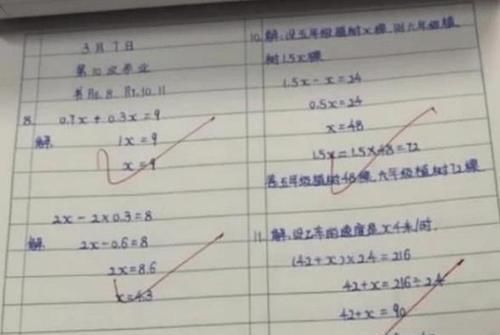 3月7日
第10次作业
书P16.8 P17.10.11
8. 0.7x+0.3x=9
解: 1x=9
x=9
2x-2×0.3=8
解: 2x-0.6=8
2x=8.6
x=4.3
10.解:设五年级植树x棵,则六年级植
树1.5x棵
1.5x-x=24
0.5x=24
x=48
1.5x=1.5×48=72
答:五年级植树48棵,六年级植树72棵
11.解:设乙车的速度是x千米/时.
(42+x)×2.4=216
42+x=216÷2.4
42+x=90